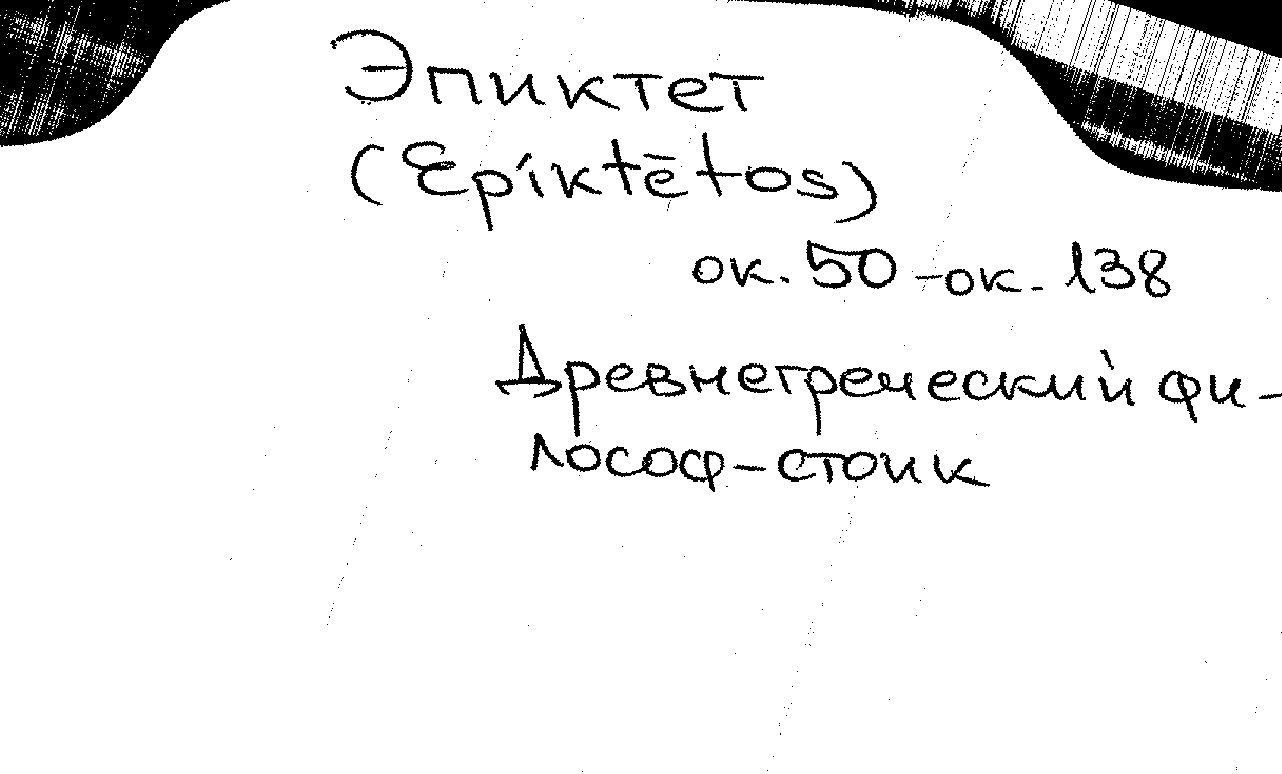 Эпиктет
(Epíktētos)
ок. 50 - ок. 138
Древнегреческий фи-
лософ-стоик